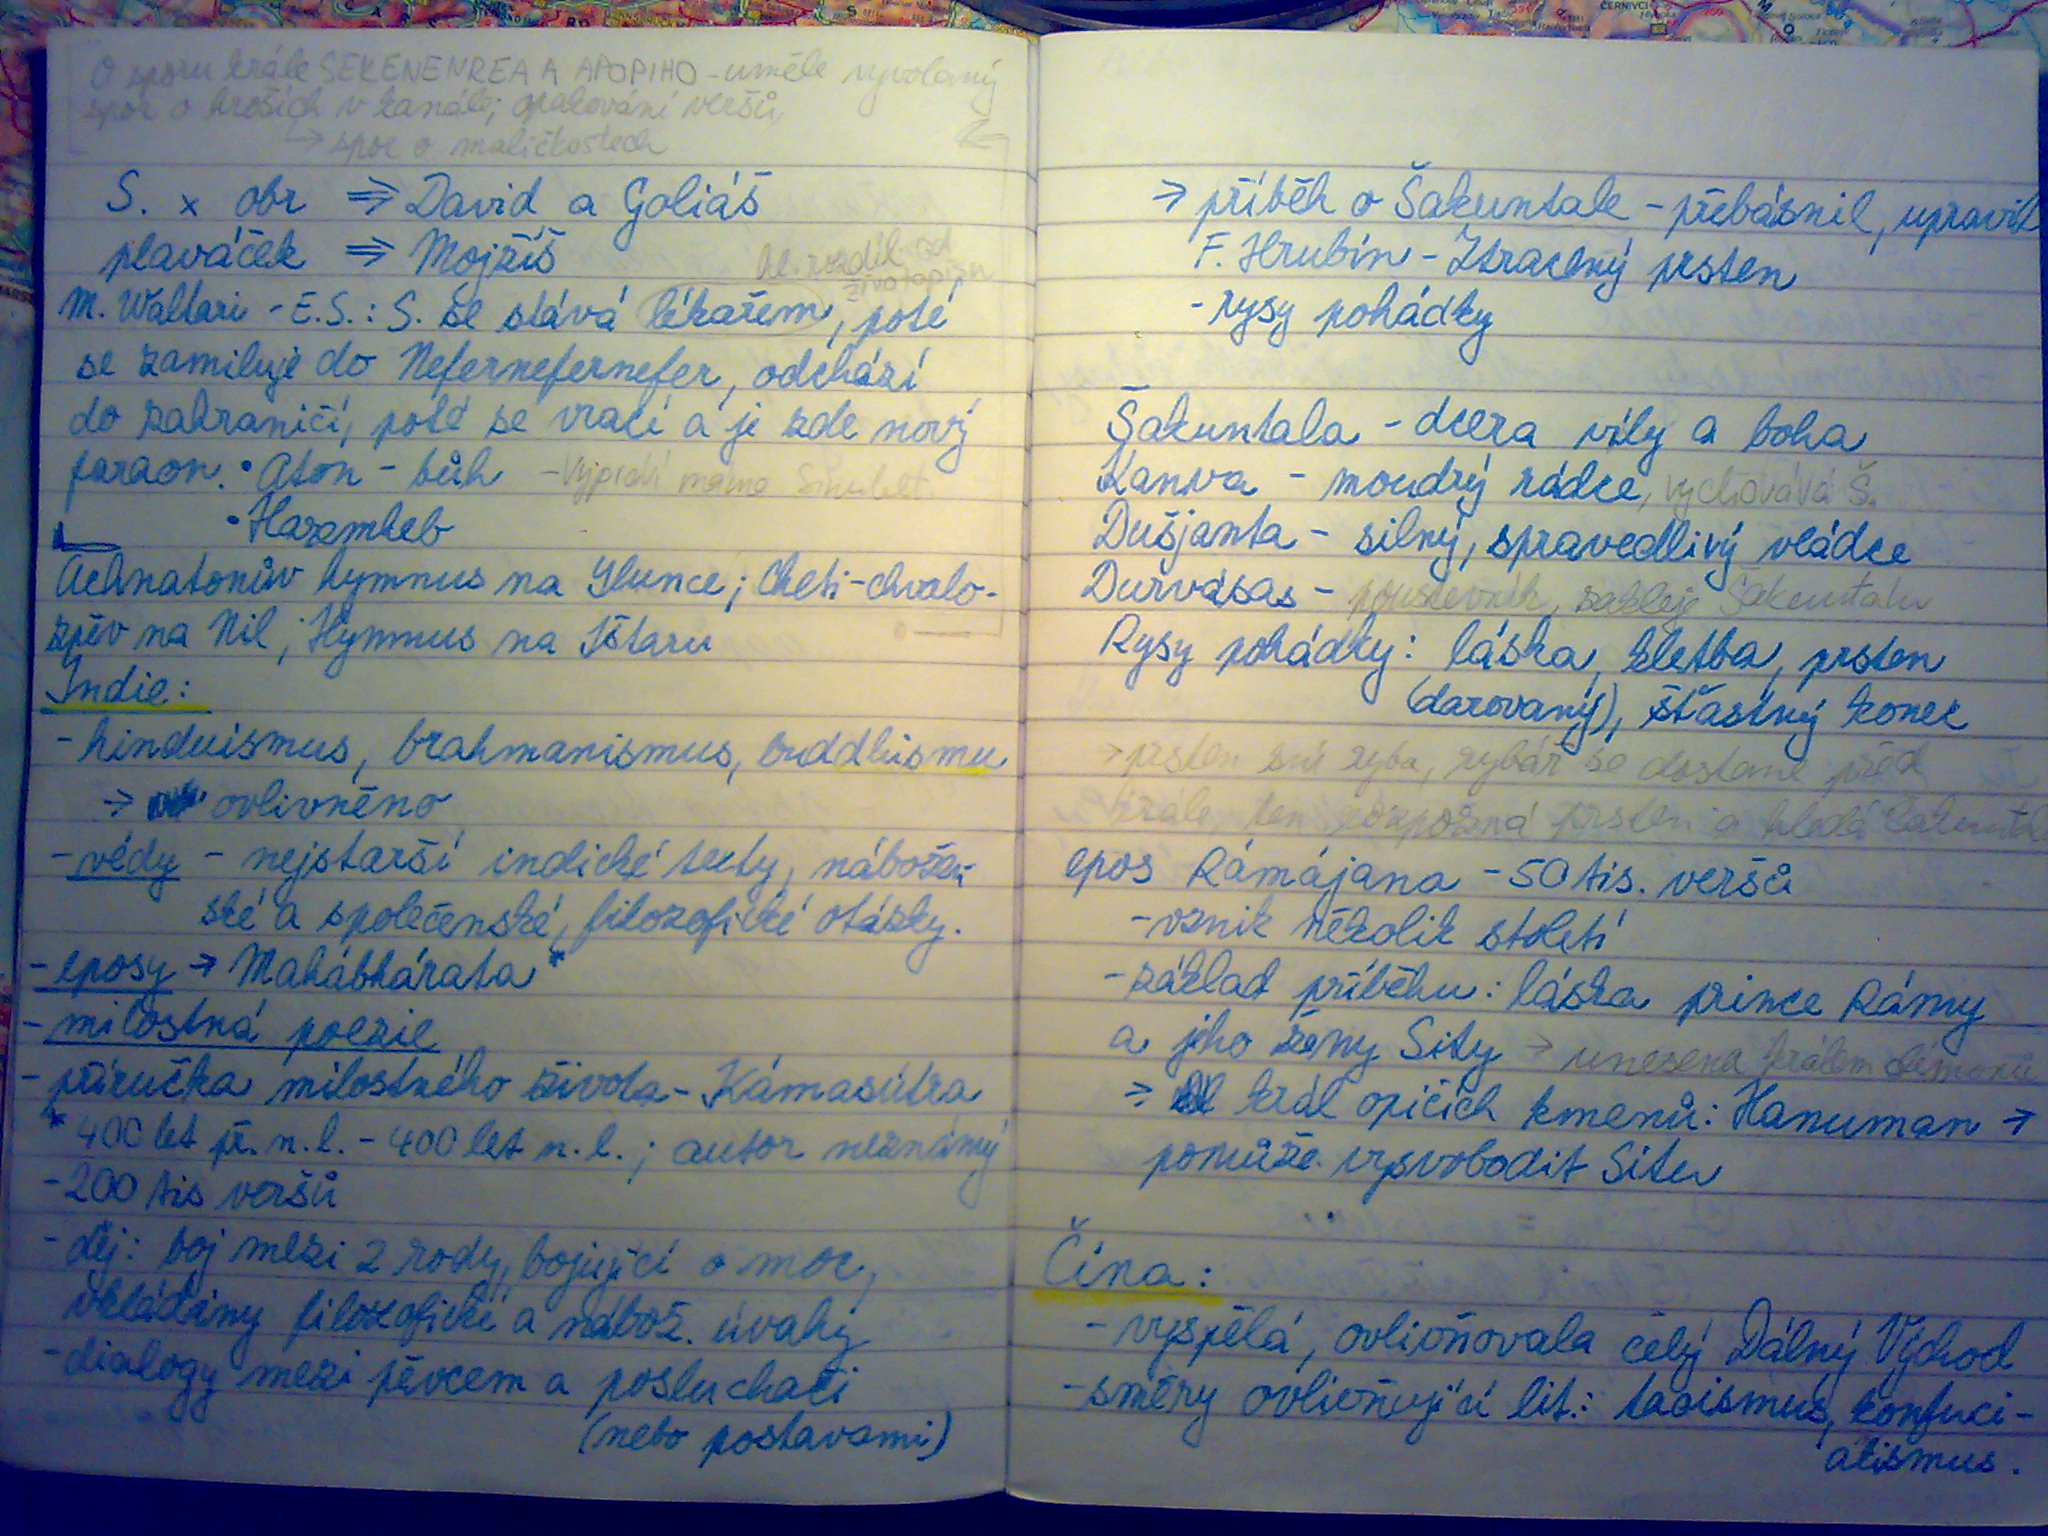 O sporu krále SEKENENREA A APOPIHO - uměle vyvolaný
spor o hroších v kanále; opakování veršů
→ spor o maličkostech
S. x obr ⇒ David a Goliáš
plaváček ⇒ Mojžíš
hl. rozdíl od
životopisu
M. Waltari - E.S.: S. se stává lékařem, poté
se zamiluje do Nefernefernefer, odchází
do zahraničí, poté se vrací a je zde nový
faraon. • Aton - bůh - Vypráví
• Haremheb
Achnatonův hymnus na Slunce; Cheti - chvalo-
zpěv na Nil; Hymnus na Ištaru
Indie:
- hinduismus, brahmanismus, buddhismu
→ ovlivněno
- védy - nejstarší indické texty, nábožen-
ské a společenské, filozofické otázky.
- eposy → Mahábhárata *
- milostná poezie
- příručka milostného života - Kámasútra
* 400 let př. n. l. - 400 let n. l.; autor neznámý
- 200 tis veršů
- děj: boj mezi 2 rody, bojující o moc,
vkládány filozofické a nábož. úvahy
- dialogy mezi pěvcem a posluchači
(nebo postavami)
→ příběh o Šakuntale - přebásnil, upravil
F. Hrubín - Ztracený prsten
- rysy pohádky
Šakuntala - dcera víly a boha
Kanva - moudrý rádce, vychovává Š.
Dušjanta - silný, spravedlivý vládce
Durvásas - poustevník, zakleje Šakuntalu
Rysy pohádky: láska, kletba, prsten
(darovaný), šťastný konec
→ prsten sní ryba, rybář se dostane před
krále, ten rozpozná prsten a hledá Šakuntalu
epos Rámájana - 50 tis. veršů
- vznik několik století
- základ příběhu: láska prince Rámy
a jeho ženy Sity → unesena králem démonů
→ král opičích kmenů: Hanuman →
pomůže vysvobodit Situ
Čína:
- vyspělá, ovlivňovala celý Dálný Východ
- směry ovlivňující lit.: taoismus, konfuci-
atismus.